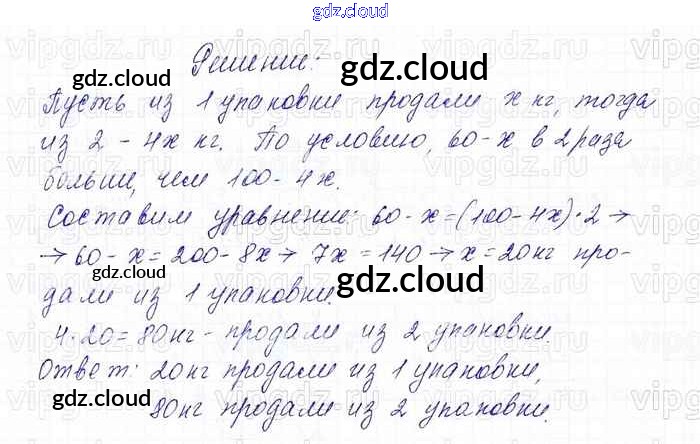 gdz.cloud
Решение:
Пусть из 1 упаковки продали x кг, тогда
из 2 - 4x кг. По условию, 60-x в 2 раза
больше, чем 100-4x.
Составим уравнение: 60-x=(100-4x)·2 →
→ 60-x=200-8x → 7x=140 → x=20кг про-
дали из 1 упаковки.
4·20=80кг - продали из 2 упаковки.
Ответ: 20кг продали из 1 упаковки,
80кг продали из 2 упаковки.
gdz.cloud
gdz.cloud
gdz.cloud
gdz.cloud
gdz.cloud
gdz.cloud
gdz.cloud